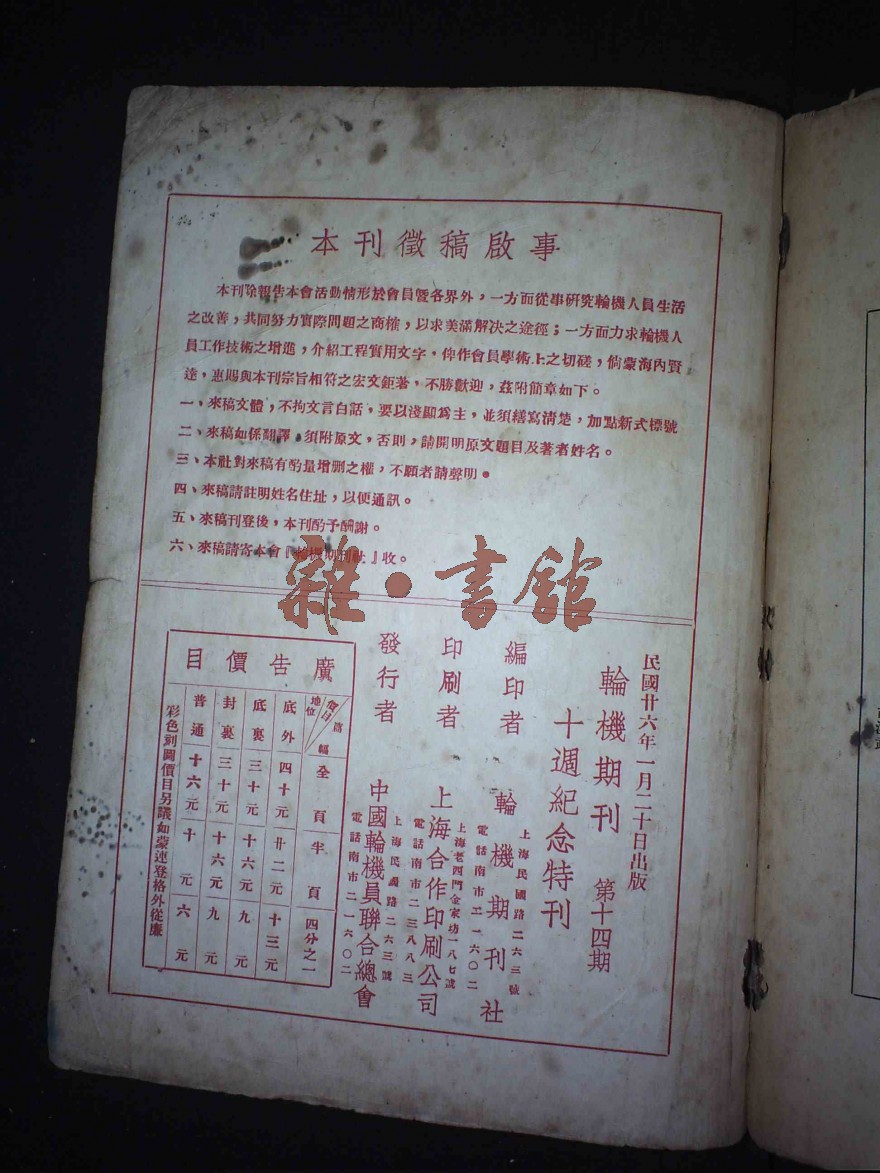 本刊徵稿啟事
本刊除報告本會活動情形於會員暨各界外，一方面從事研究輪機人員生活
之改善，共同努力實際問題之商榷，以求美滿解決之途徑；一方面力求輪機人
員工作技術之增進，介紹工程實用文字，俾作會員學術上之切磋，倘蒙海內賢
達，惠賜與本刊宗旨相符之宏文鉅著，不勝歡迎，茲附簡章如下。
一、來稿文體，不拘文言白話，要以淺顯爲主，並須繕寫清楚，加點新式標號
二、來稿如係翻譯，須附原文，否則，請開明原文題目及著者姓名。
三、本社對來稿有酌量增刪之權，不願者請聲明。
四、來稿請註明姓名住址，以便通訊。
五、來稿刊登後，本刊酌予酬謝。
六、來稿請寄本會『輪機期刊社』收。
雜·書館
民國廿六年一月二十日出版
輪機期刊 第十四期
十週紀念特刊
編印者 輪機期刊社
上海民國路二六三號
電話南市二一六〇二
印刷者 上海合作印刷公司
上海老西門金家坊一八七號
電話南市二三八八三
發行者 中國輪機員聯合總會
上海民國路二六三號
電話南市二一六〇二
廣告價目
地位 價目 篇幅 全頁 半頁 四分之一
底外 四十元 廿二元 十三元
底裏 三十元 十六元 九元
封裏 三十元 十六元 九元
普通 十六元 十元 六元
彩色刊圖價目另議如蒙連登格外從廉